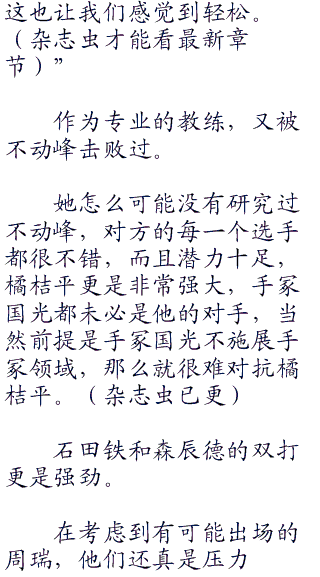 这也让我们感觉到轻松。
（杂志虫才能看最新章
节）”
作为专业的教练，又被
不动峰击败过。
她怎么可能没有研究过
不动峰，对方的每一个选手
都很不错，而且潜力十足，
橘桔平更是非常强大，手冢
国光都未必是他的对手，当
然前提是手冢国光不施展手
冢领域，那么就很难对抗橘
桔平。（杂志虫已更）
石田铁和森辰德的双打
更是强劲。
在考虑到有可能出场的
周瑞，他们还真是压力